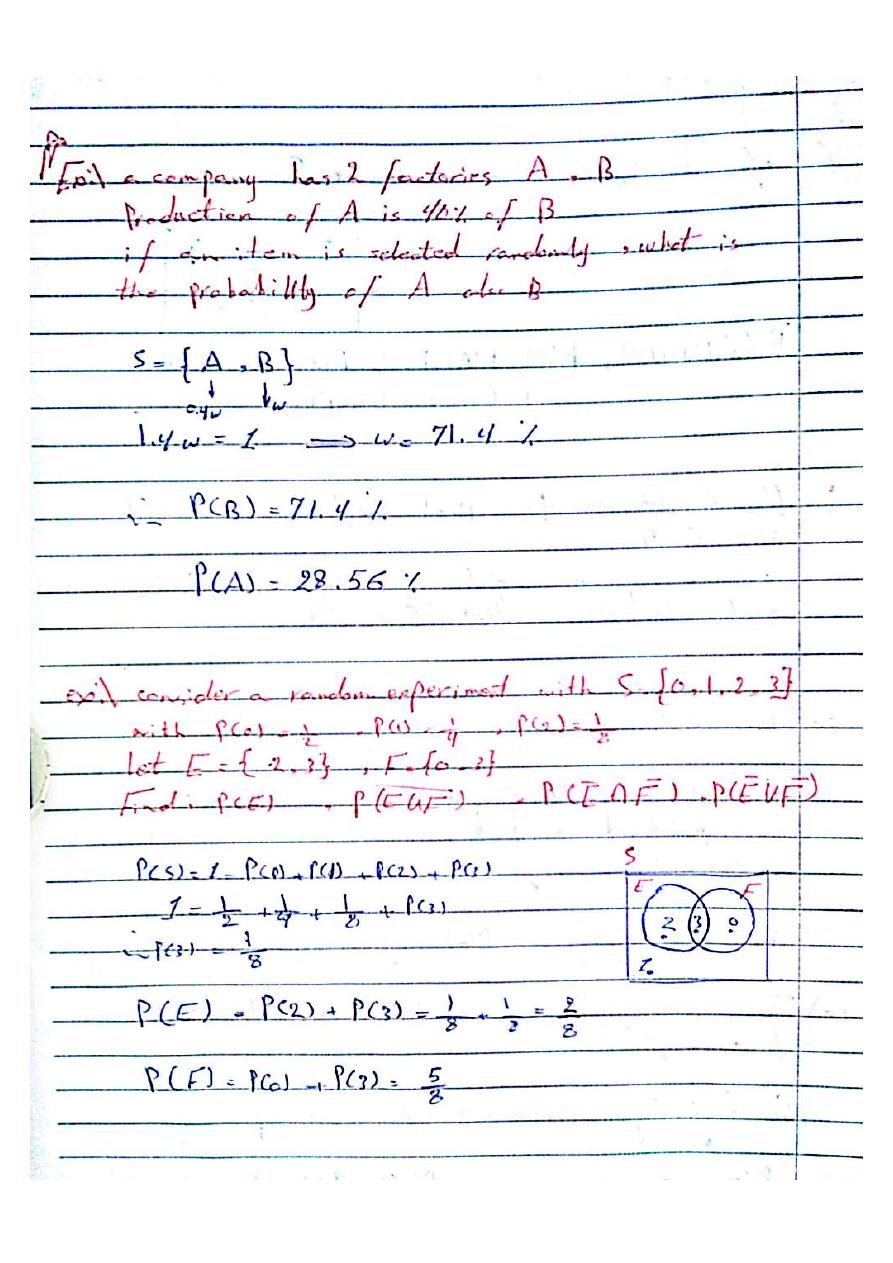 Ex:\ a company has 2 factories A , B
Production of A is 40% of B
if an item is selected randomly , what is
the probabillty of A also B
S = { A , B }
0.4w w
1.4 w = 1 ⟹ w = 71.4 %
∴ P(B) = 71.4 %
P(A) = 28.56 %
Ex:\ consider a random experiment with S = {0, 1, 2, 3}
with P(0) = 1/2 , P(1) = 1/4 , P(2) = 1/8
let E = { 2, 3} , F = {0, 3}
Find : P(E) , P(\overline{E∪F}) , P(Ē ∩ F̄) , P(Ē ∪ F̄)
P(S) = 1 = P(0) + P(1) + P(2) + P(3)
1 = 1/2 + 1/4 + 1/8 + P(3)
∴ P(3) = 1/8
S
E F
2 3 0
1
P(E) = P(2) + P(3) = 1/8 + 1/8 = 2/8
P(F) = P(0) + P(3) = 5/8